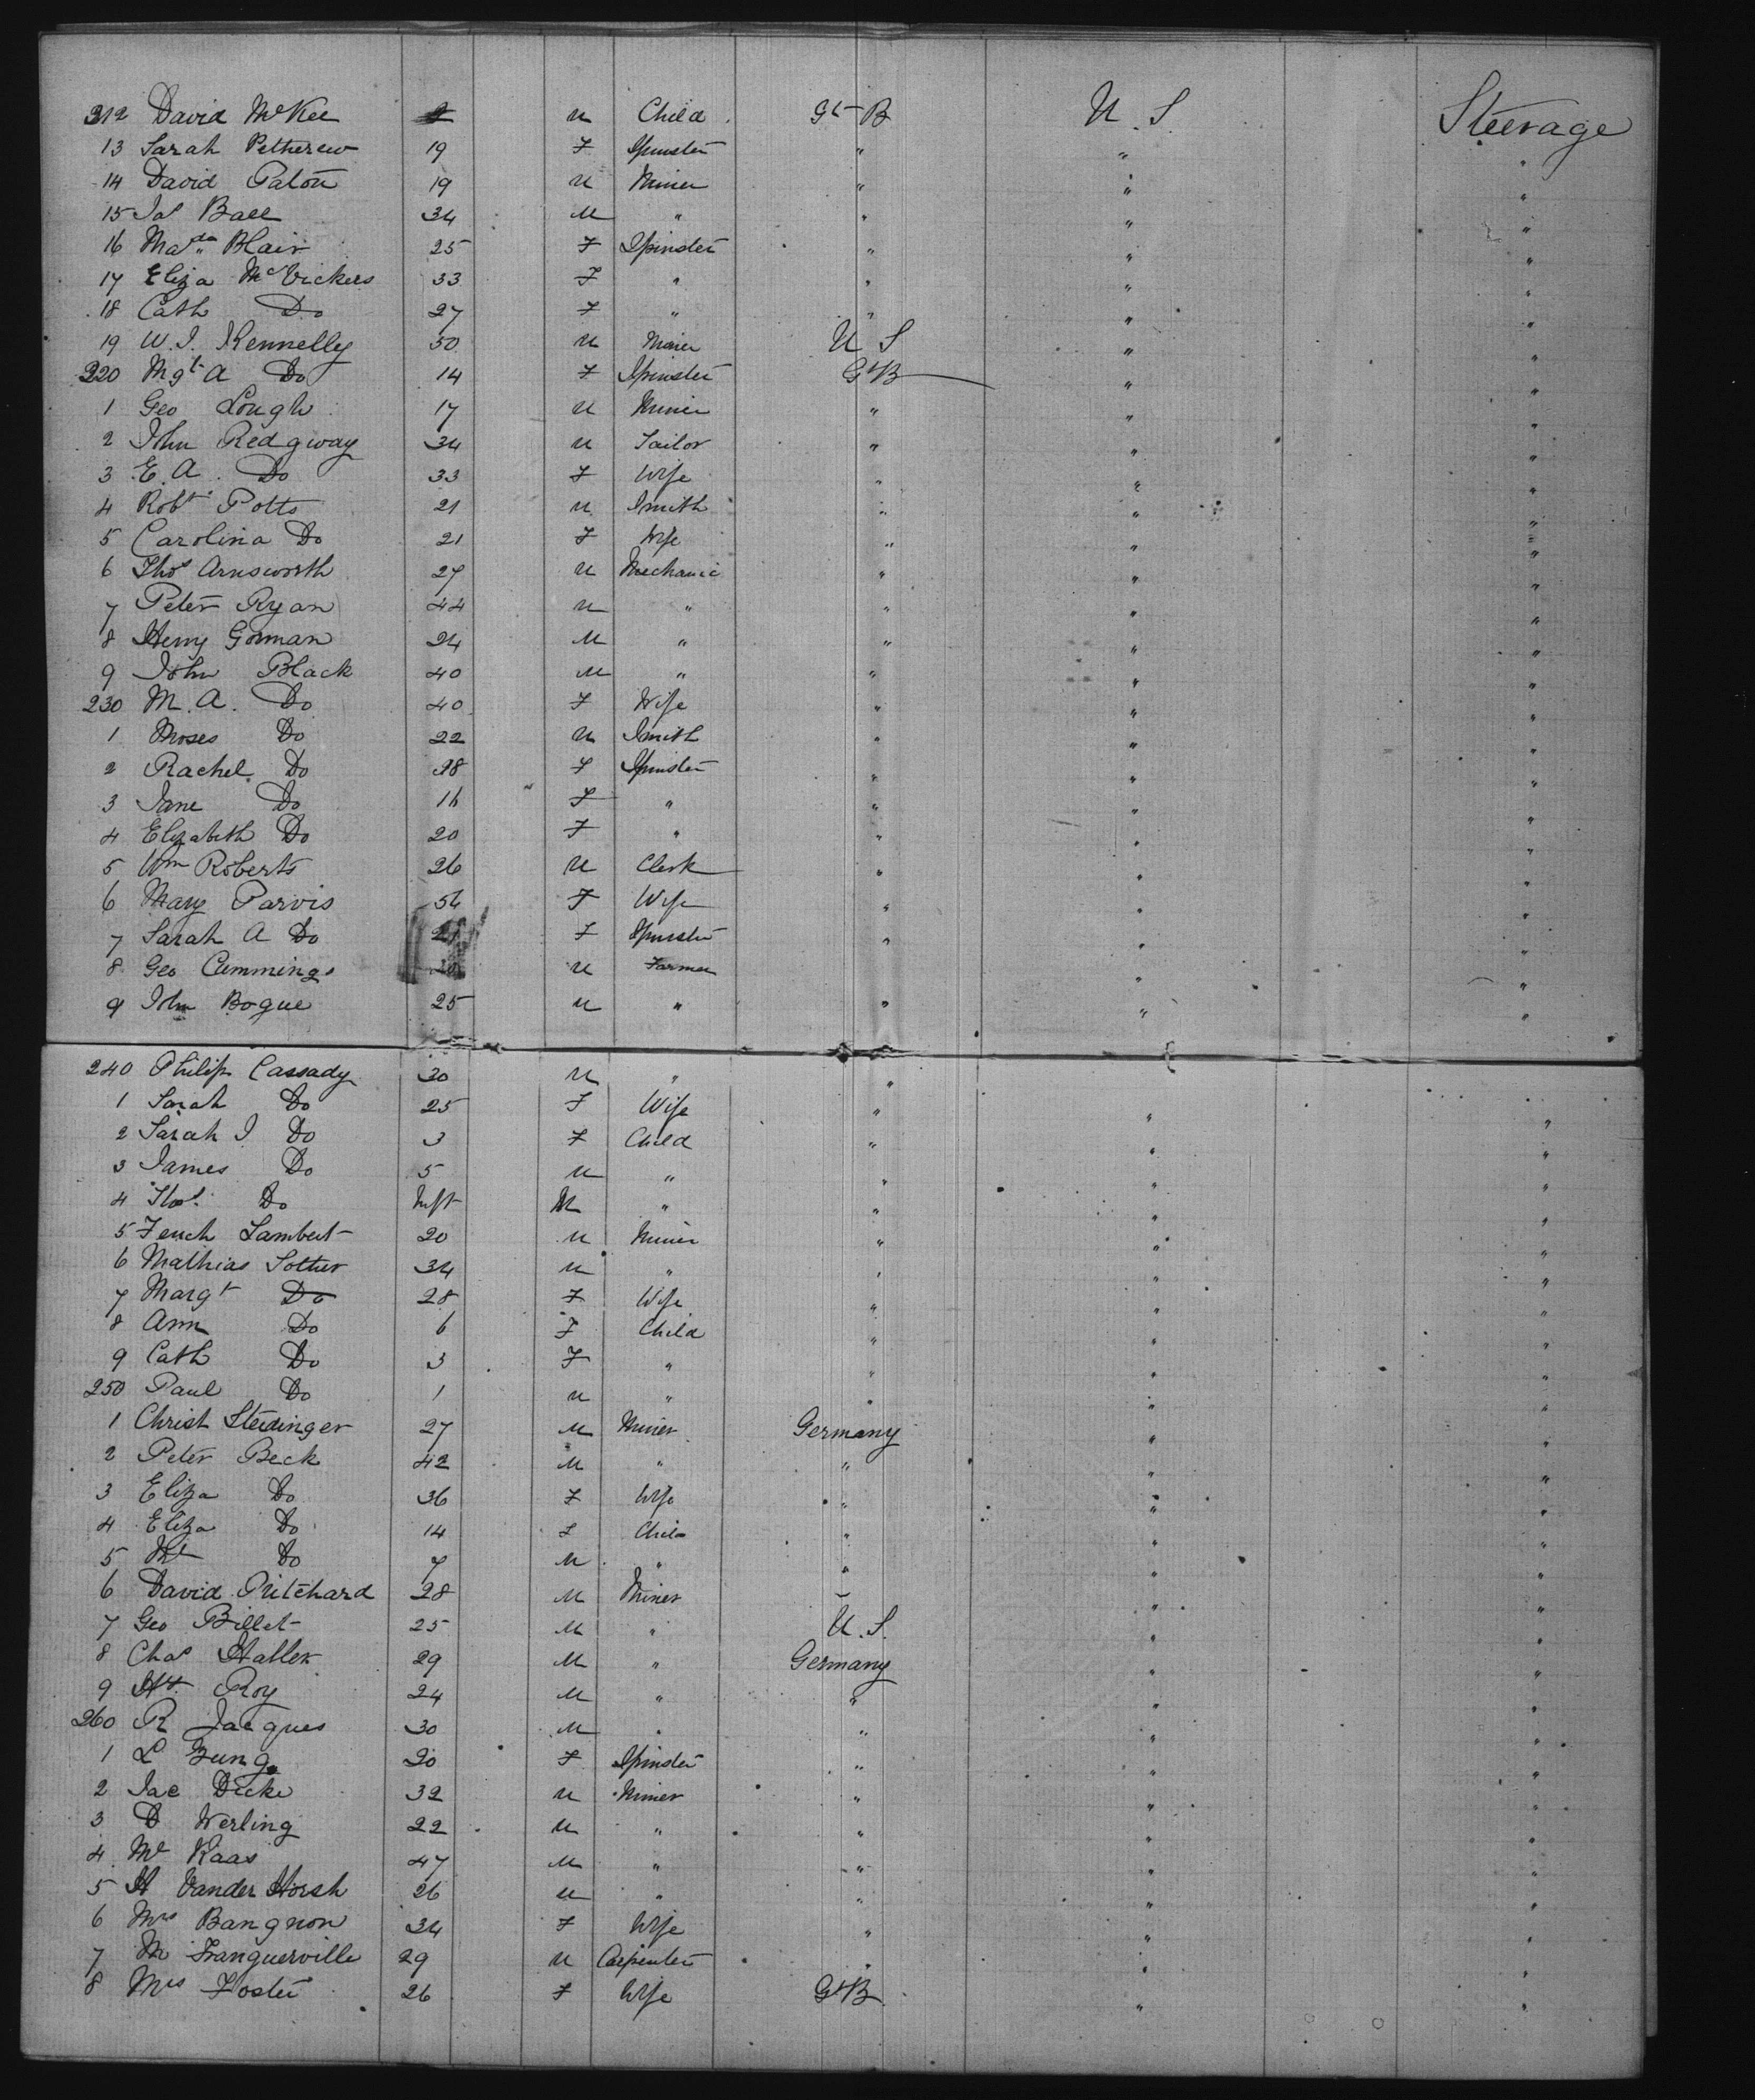 212 David McKee 2 M Child Gt B U.S. Steerage
13 Sarah Petherew 19 F Spinster " " "
14 David Paton 19 M Miner " " "
15 Jas Ball 34 M " " " "
16 Magda Blair 25 F Spinster " " "
17 Eliza McVickers 33 F " " " "
18 Cath Do 27 F " " " "
19 W.J. Kennelly 50 M Miner U S " "
220 Mgt A Do 14 F Spinster Gt B " "
1 Geo Lough 17 M Miner " " "
2 John Redgway 34 M Tailor " " "
3 E.A. Do 33 F Wife " " "
4 Robt Potts 21 M Smith " " "
5 Carolina Do 21 F Wife " " "
6 Thos Arnsworth 27 M Mechanic " " "
7 Peter Ryan 44 M " " " "
8 Henry Gorman 24 M " " " "
9 John Black 40 M " " " "
230 M.A. Do 40 F Wife " " "
1 Moses Do 22 M Smith " " "
2 Rachel Do 18 F Spinster " " "
3 Jane Do 16 F " " " "
4 Elizabeth Do 20 F " " " "
5 Wm Roberts 26 M Clerk " " "
6 Mary Parvis 56 F Wife " " "
7 Sarah A Do 21 F Spinster " " "
8 Geo Cummings M Farmer " "
9 John Bogue 25 M " " " "
240 Philip Cassady 30 M " "
1 Sarah Do 25 F Wife " " "
2 Sarah J. Do 3 F Child " " "
3 James Do 5 M " " " "
4 Thos. Do Inft M " " " "
5 Lambert 20 M Miner " " "
6 Mathias Sother 34 M " " " "
7 Margt Do 28 F Wife " " "
8 Ann Do 6 F Child " " "
9 Cath Do 3 F " " " "
250 Paul Do 1 M " " " "
1 Christ Steidinger 27 M Miner Germany " "
2 Peter Beck 42 M " " " "
3 Eliza Do 36 F Wife " " "
4 Eliza Do 14 F Child " " "
5 Do 7 M " " " "
6 David Pritchard 28 M Miner " " "
7 Geo Billet 25 M " U.S. " "
8 Chas Staller 29 M " Germany " "
9 Roy 24 M " " " "
260 R Jacques 30 M " " " "
1 L Zung 20 F Spinster " " "
2 Jac Dicke 32 M Miner " " "
3 D Werling 22 M " " " "
4 Mr Kaas 47 M " " " "
5 H Vander Horsh 26 M " " " "
6 Mrs Bangnon 34 F Wife " " "
7 M Franguerville 29 M Carpenter " " "
8 Mrs Foster 26 F Wife Gt B " "